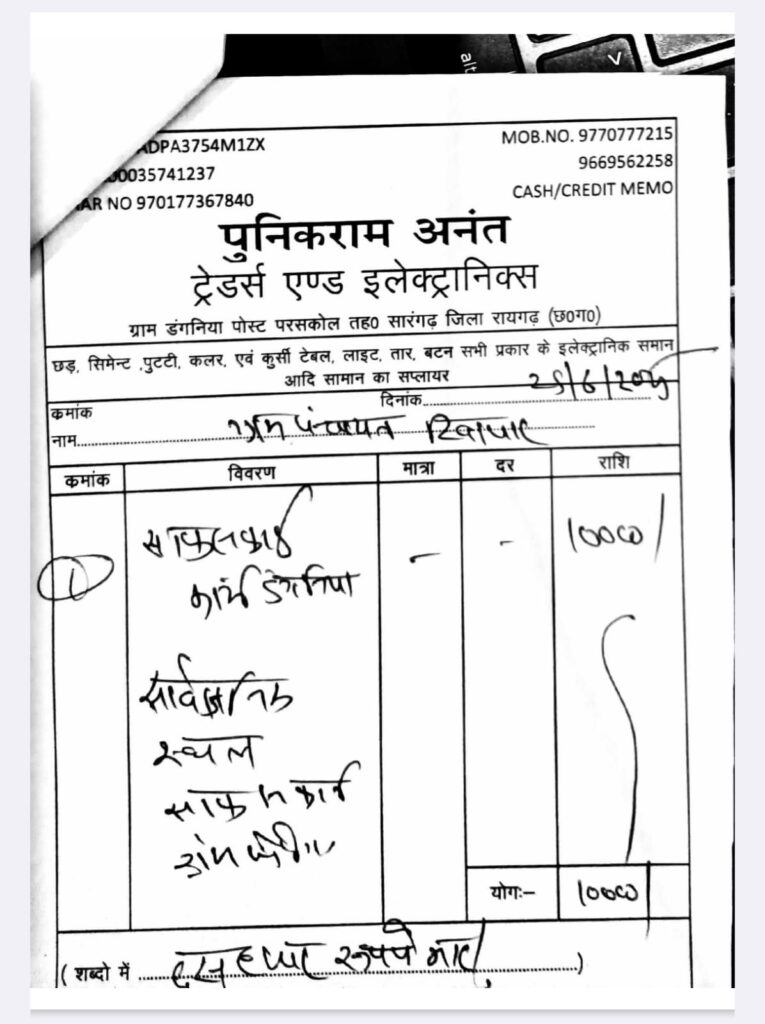 ADPA3754M1ZX
MOB.NO. 9770777215
00035741237
9669562258
AR NO 970177367840
CASH/CREDIT MEMO
पुनिकराम अनंत
ट्रेडर्स एण्ड इलेक्ट्रानिक्स
ग्राम डंगनिया पोस्ट परसकोल तह0 सारंगढ़ जिला रायगढ़ (छ0ग0)
छड़, सिमेन्ट ,पुटटी, कलर, एवं कुर्सी टेबल, लाइट, तार, बटन सभी प्रकार के इलेक्ट्रानिक समान
आदि सामान का सप्लायर
कमांक दिनांक
नाम ग्राम पंचायत
कमांक विवरण मात्रा दर राशि
1 - - 10000/
कार्य डंगनिया
सार्वजनिक
स्थल
योगः– 10000
( शब्दो में दस हजार रूपये मात्र )